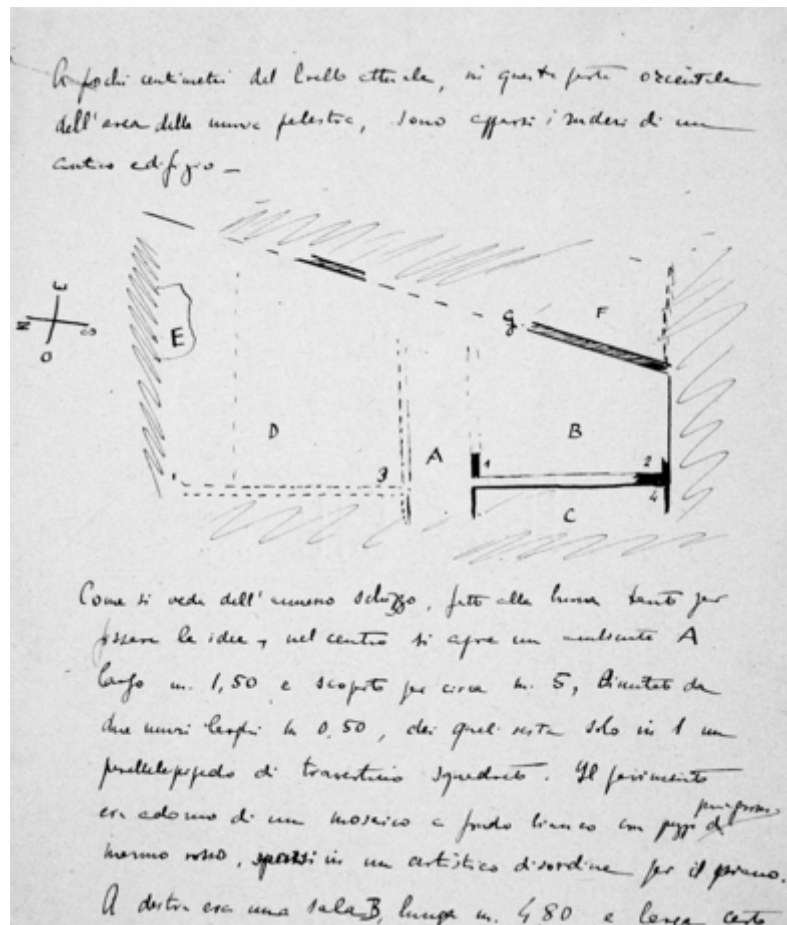 A pochi centimetri dal livello attuale, in questa parte orientale
dell'area della nuova palestra, sono apparsi i ruderi di un
antico edifizio —
E
N S
O
E
G F
D
A
B
3
1
2
4
C
Come si vede dall'annesso schizzo, fatto alla buona tanto per
fissare le idee, nel centro si apre un ambiente A
largo m. 1,50 e scoperto per circa m. 5, limitato da
due muri larghi m 0,50, dei quali resta solo in 1 un
parallelepipedo di travertino squadrato. Il pavimento
era adorno di un mosaico a fondo bianco con pezzi di
marmo rosso, sparsi in un artistico disordine per il piano.
A destra era una sala B, lunga m. 4 80 e larga certo